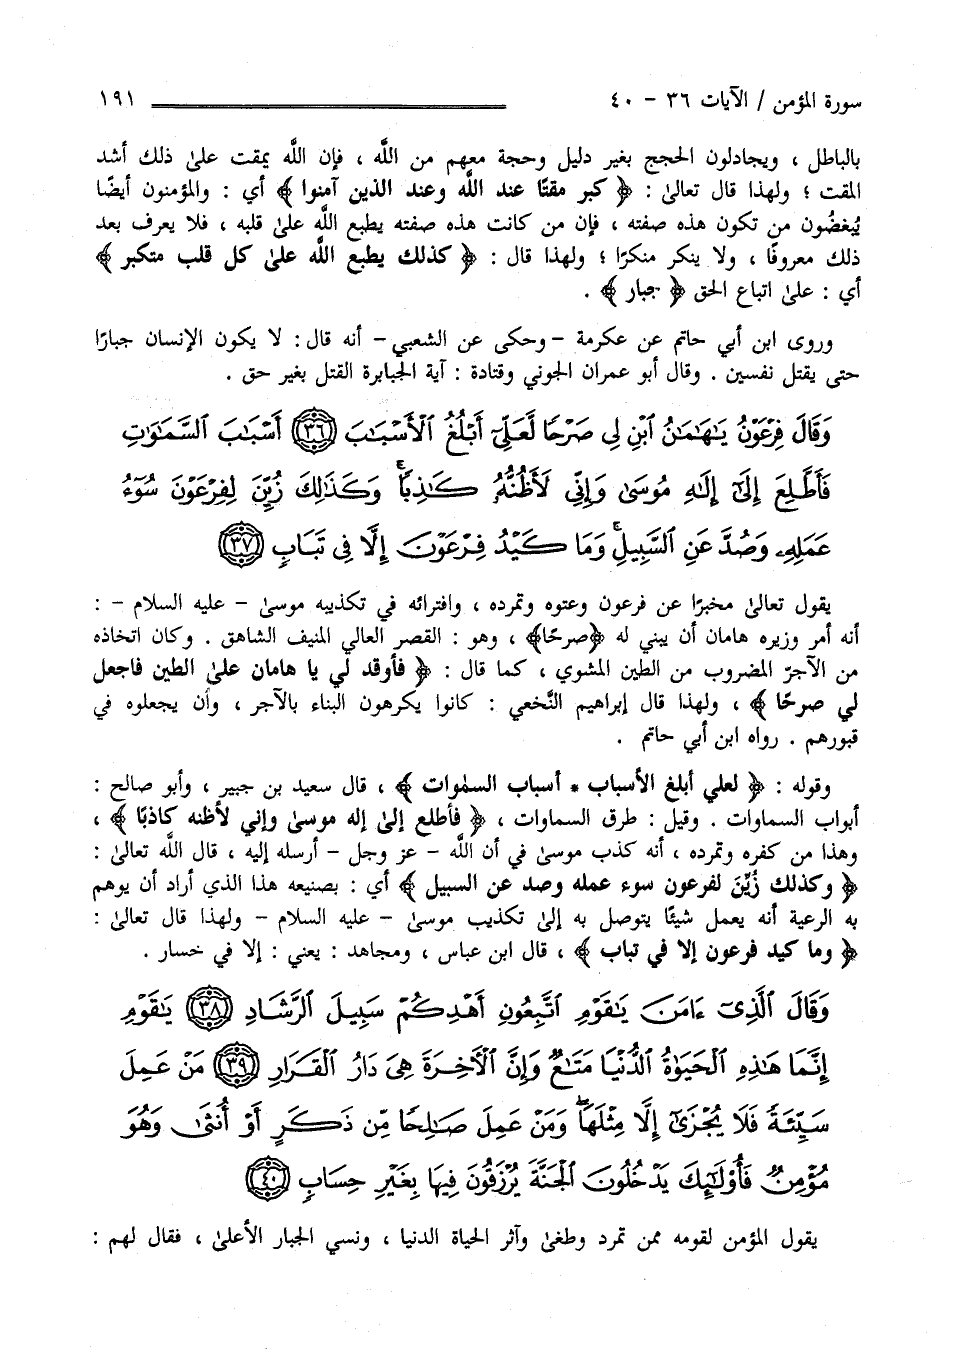 سورة المؤمن / الآيات ٣٦ - ٤٠ ١٩١
بالباطل ، ويجادلون الحجج بغير دليل وحجة معهم من الله ، فإن الله يمقت علىٰ ذلك أشد
المقت ؛ ولهذا قال تعالىٰ : ﴿ كبر مقتًا عند الله وعند الذين آمنوا ﴾ أي : والمؤمنون أيضًا
يُبغضُون من تكون هذه صفته ، فإن من كانت هذه صفته يطبع الله علىٰ قلبه ، فلا يعرف بعد
ذلك معروفًا ، ولا ينكر منكرًا ؛ ولهذا قال : ﴿ كذلك يطبع الله علىٰ كل قلب متكبر ﴾
أي : علىٰ اتباع الحق ﴿ جبار ﴾ .
وروى ابن أبي حاتم عن عكرمة - وحكى عن الشعبي - أنه قال : لا يكون الإنسان جبارًا
حتى يقتل نفسين . وقال أبو عمران الجوني وقتادة : آية الجبابرة القتل بغير حق .
وَقَالَ فِرْعَوْنُ يَٰهَٰمَٰنُ ٱبْنِ لِى صَرْحًا لَّعَلِّىٓ أَبْلُغُ ٱلْأَسْبَٰبَ ٣٦ أَسْبَٰبَ ٱلسَّمَٰوَٰتِ
فَأَطَّلِعَ إِلَىٰٓ إِلَٰهِ مُوسَىٰ وَإِنِّى لَأَظُنُّهُۥ كَٰذِبًا ۚ وَكَذَٰلِكَ زُيِّنَ لِفِرْعَوْنَ سُوٓءُ
عَمَلِهِۦ وَصُدَّ عَنِ ٱلسَّبِيلِ ۚ وَمَا كَيْدُ فِرْعَوْنَ إِلَّا فِى تَبَابٍ ٣٧
يقول تعالىٰ مخبرًا عن فرعون وعتوه وتمرده ، وافترائه في تكذيبه موسىٰ - عليه السلام - :
أنه أمر وزيره هامان أن يبني له ﴿صرحًا﴾ ، وهو : القصر العالي المنيف الشاهق . وكان اتخاذه
من الآجرّ المضروب من الطين المشوي ، كما قال : ﴿ فأوقد لي يا هامان علىٰ الطين فاجعل
لي صرحًا ﴾ ، ولهذا قال إبراهيم النَّخعي : كانوا يكرهون البناء بالآجر ، وأن يجعلوه في
قبورهم . رواه ابن أبي حاتم .
وقوله : ﴿ لعلي أبلغ الأسباب * أسباب السمٰوات ﴾ ، قال سعيد بن جبير ، وأبو صالح :
أبواب السماوات . وقيل : طرق السماوات ، ﴿ فأطلع إلىٰ إله موسىٰ وإني لأظنه كاذبًا ﴾ ،
وهذا من كفره وتمرده ، أنه كذب موسىٰ في أن الله - عز وجل - أرسله إليه ، قال الله تعالىٰ :
﴿ وكذلك زُيِّنَ لفرعون سوء عمله وصد عن السبيل ﴾ أي : بصنيعه هذا الذي أراد أن يوهم
به الرعية أنه يعمل شيئًا يتوصل به إلىٰ تكذيب موسىٰ - عليه السلام - ولهذا قال تعالىٰ :
﴿ وما كيد فرعون إلا في تباب ﴾ ، قال ابن عباس ، ومجاهد : يعني : إلا في خسار .
وَقَالَ ٱلَّذِىٓ ءَامَنَ يَٰقَوْمِ ٱتَّبِعُونِ أَهْدِكُمْ سَبِيلَ ٱلرَّشَادِ ٣٨ يَٰقَوْمِ
إِنَّمَا هَٰذِهِ ٱلْحَيَوٰةُ ٱلدُّنْيَا مَتَٰعٌ وَإِنَّ ٱلْآخِرَةَ هِىَ دَارُ ٱلْقَرَارِ ٣٩ مَنْ عَمِلَ
سَيِّئَةً فَلَا يُجْزَىٰٓ إِلَّا مِثْلَهَا ۖ وَمَنْ عَمِلَ صَٰلِحًا مِّن ذَكَرٍ أَوْ أُنثَىٰ وَهُوَ
مُؤْمِنٌ فَأُو۟لَٰٓئِكَ يَدْخُلُونَ ٱلْجَنَّةَ يُرْزَقُونَ فِيهَا بِغَيْرِ حِسَابٍ ٤٠
يقول المؤمن لقومه ممن تمرد وطغىٰ وآثر الحياة الدنيا ، ونسي الجبار الأعلىٰ ، فقال لهم :